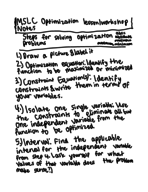 MSLC Optimization boomworkshop
Notes
Steps for solving optimization
problems
1) Draw a picture & label it
2) Optimization equation: Identify the
function to be maximized or minimized
3) Constraint Equation(s): Identify
constraints & write them in terms of
your variables.
4) Isolate one single variable. Use
the constraints to eliminate all but
one independent variable from the
function to be optimized
5) Interval. Find the applicable
interval for the independent variable
from step 4. (Ask yourself for what
values of this variable does the problem
make sense?)